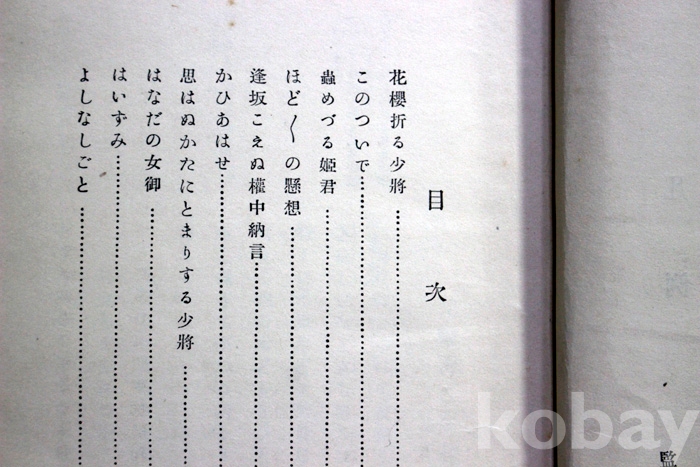 目次
花櫻折る少將
このついで
蟲めづる姬君
ほど〱の懸想
逢坂こえぬ權中納言
かひあはせ
思はぬかたにとまりする少將
はなだの女御
はいずみ
よしなしごと
監
kobay